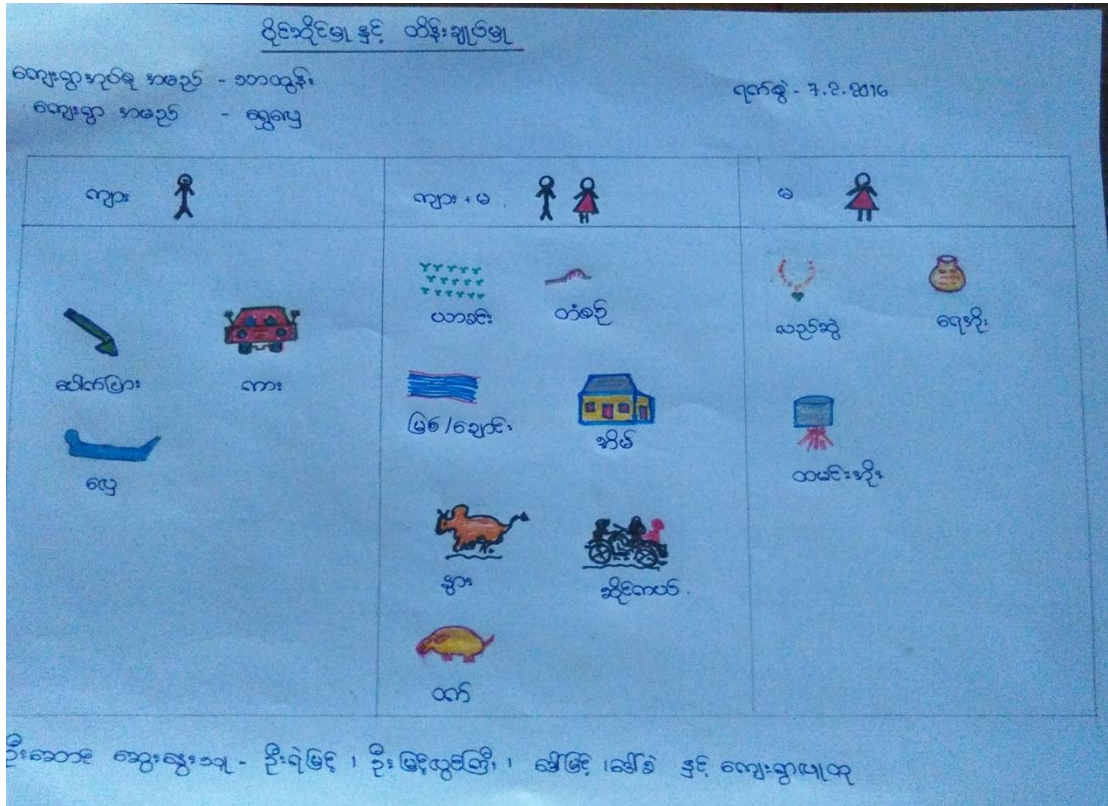 ပိုင်ဆိုင်မှု နှင့် ထိန်းချုပ်မှု
ကျေးရွာအုပ်စု အမည် -
ကျေးရွာ အမည် - ရွှေလှေ
ရက်စွဲ - 7.2.2016
ကျား
ကျား + မ
မ
ပေါက်ပြား
ကား
လှေ
ယာခင်း
တံစဉ်
မြစ်/ချောင်း
အိမ်
နွား
ဆိုင်ကယ်
ဝက်
လည်ဆွဲ
ရေအိုး
ထမင်းအိုး
ဦးဆောင် ဆွေးနွေးသူ - ဦးရဲမြင့် ၊ ဦးမြင့်လွင်ကြီး ၊ ဒေါ်မြင့် ၊ နှင့် ကျေးရွာလူထု